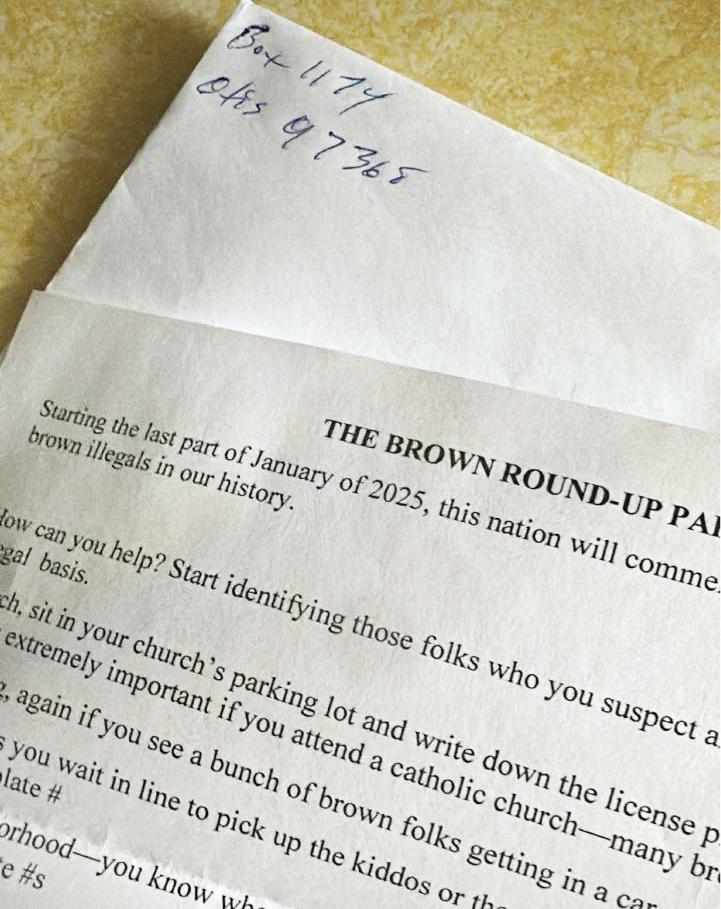 Box 1174
Otis 97368
THE BROWN ROUND-UP
Starting the last part of January of 2025, this nation will
brown illegals in our history.
How can you help? Start identifying those folks who you suspect
basis.
sit in your church's parking lot and write down the license
extremely important if you attend a catholic church—many
again if you see a bunch of brown folks getting in a car
you wait in line to pick up the kiddos or
#
you know
#s